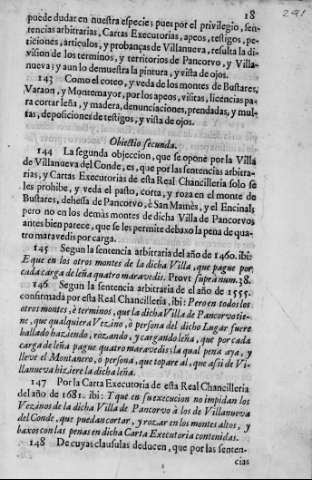 18
291
puede dudar en nuestra especie; pues por el privilegio, sen-
tencias arbitrarias, Cartas Executorias, apeos, testigos, pe-
ticiones, articulos, y probanças de Villanueva, resulta la di-
vision de los terminos, y territorios de Pancorvo, y Villa-
nueva; y aun lo demuestra la pintura, y vista de ojos.
143 Como el coteo, y veda de los montes de Bustares,
Varaon, y Montemayor, por los apeos, visitas, licencias pa-
ra cortar leña, y madera, denunciaciones, prendadas, y mul-
tas, deposiciones de testigos, y vista de ojos.
Obiectio secunda.
144 La segunda objeccion, que se opone por la Villa
de Villanueva del Conde, es, que por las sentencias arbitra-
rias, y Cartas Executorias de esta Real Chancilleria solo se
les prohibe, y veda el pasto, corta, y roza en el monte de
Bustares, dehessa de Pancorvo, è San Mamès, y el Encinal;
pero no en los demàs montes de dicha Villa de Pancorvo;
antes bien parece, que se les permite debaxo la pena de qua-
tro maravedis por carga.
145 Segun la sentencia arbitraria del año de 1460. ibi:
E que en los otros montes de la dicha Villa, que pague por
cada carga de leña quatro maravedis. Provt supra num. 38.
146 Segun la sentencia arbitraria de el año de 1555.
confirmada por esta Real Chancilleria, ibi: Pero en todos los
otros montes, è terminos, que la dicha Villa de Pancorvo tie-
ne, que qualquiera Vezino, ò persona del dicho Lugar fuere
hallado haziendo, rozando, y cargando leña, que por cada
carga de leña pague quatro maravedis; la qual pena aya, y
lleve el Montanero, ò persona, que topare al, que assi de Vi-
llanueva hiziere la dicha leña.
147 Por la Carta Executoria de esta Real Chancilleria
del año de 1681. ibi: Y que en su execucion no impidan los
Vezinos de la dicha Villa de Pancorvo à los de Villanueva
del Conde, que puedan cortar, y rozar en los montes altos, y
baxos con las penas en dicha Carta Executoria contenidas.
148 De cuyas clausulas deducen, que por las senten-
cias